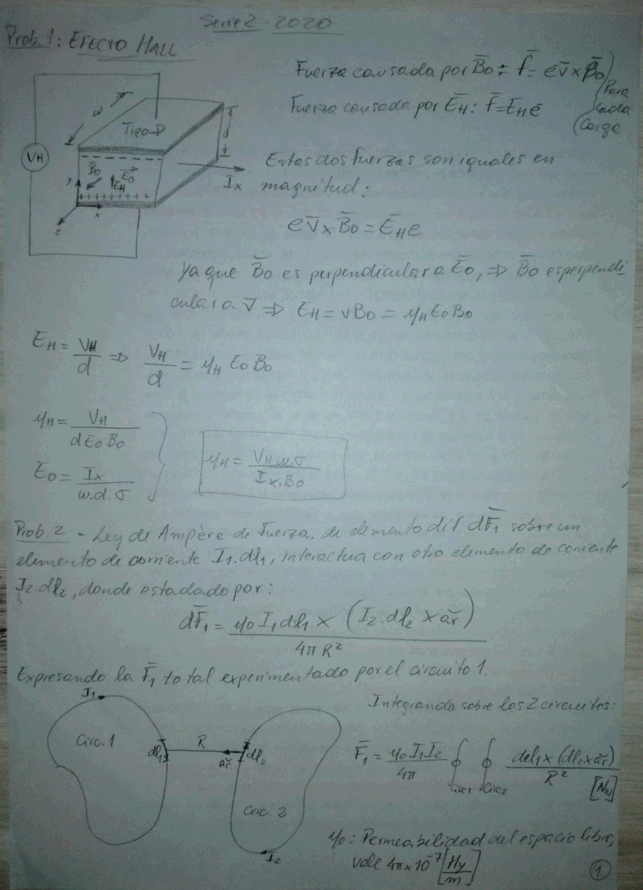 Serie 2 - 2020
Prob. 1: EFECTO HALL
Fuerza causada por B̄o: f̄ = e v̄ x B̄o
Fuerza causada por ĒH: f̄ = ĒH e
(Para cada carga)
w
Tipo-P
d
VH
B̄o
Ēo
EH
Ix
y
x
z
Estas dos fuerzas son iguales en
magnitud:
e v̄ x B̄o = ĒH e
ya que B̄o es perpendicular a Ēo, => B̄o es perpendi-
cular a v̄ => EH = vBo = μH Eo Bo
EH = VH/d => VH/d = μH Eo Bo
μH = VH/(d Eo Bo)
Eo = Ix/(w.d.σ)
μH = VH w.σ/(Ix.Bo)
Prob. 2 - Ley de Ampère de fuerza, de elemento dif dF̄1 sobre un
elemento de corriente I1.dl1, interactua con otro elemento de corriente
I2 dl2, donde esta dado por:
dF̄1 = μo I1 dl1 x (I2.dl2 x ār)/(4π R²)
Expresando la F̄1 total experimentado por el circuito 1.
Integrando sobre los 2 circuitos:
I1
Circ. 1
dl1
R
ār
dl2
Circ. 2
I2
F̄1 = μo I1 I2/(4π) ∮circ1 ∮circ2 dl1 x (dl2 x ār)/R² [Nw]
μo: Permeabilidad del espacio libre,
vale 4π x 10⁻⁷ [Hy/m]
1